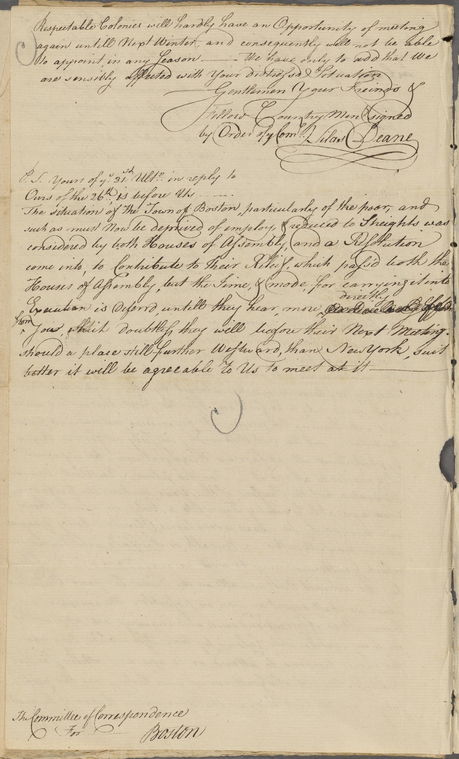 Respectable Colonies will hardly have an Opportunity of meeting
again untill Next Winter, and consequently will not be able
to appoint in any Season —— We have only to add that We
are sensibly affected with Your distressed Situation
Gentlemen Your Friends &
Fellow Country Men signed
by Order of ye Com.
Silas Deane
P. S. Yours of ye 31st Ulto. in reply to
Ours of the 26th is before Us ——
The situation of the Town of Boston, particularly of the poor, and
such as must Now be deprived of employ, & reduced to Streights was
considered by both Houses of Assembly and a Resolution
come into, to Contribute to Their Relief, which passd both the
Houses of Assembly, but the Time, & mode, for carrying it into
Execution is deferd, untill they hear, more directly
from You, which doubtless they will before their Next Meeting.
should a place still further Westward, than New York suit
better it will be agreeable to Us to meet at it ——
The Committee of Correspondence
For Boston